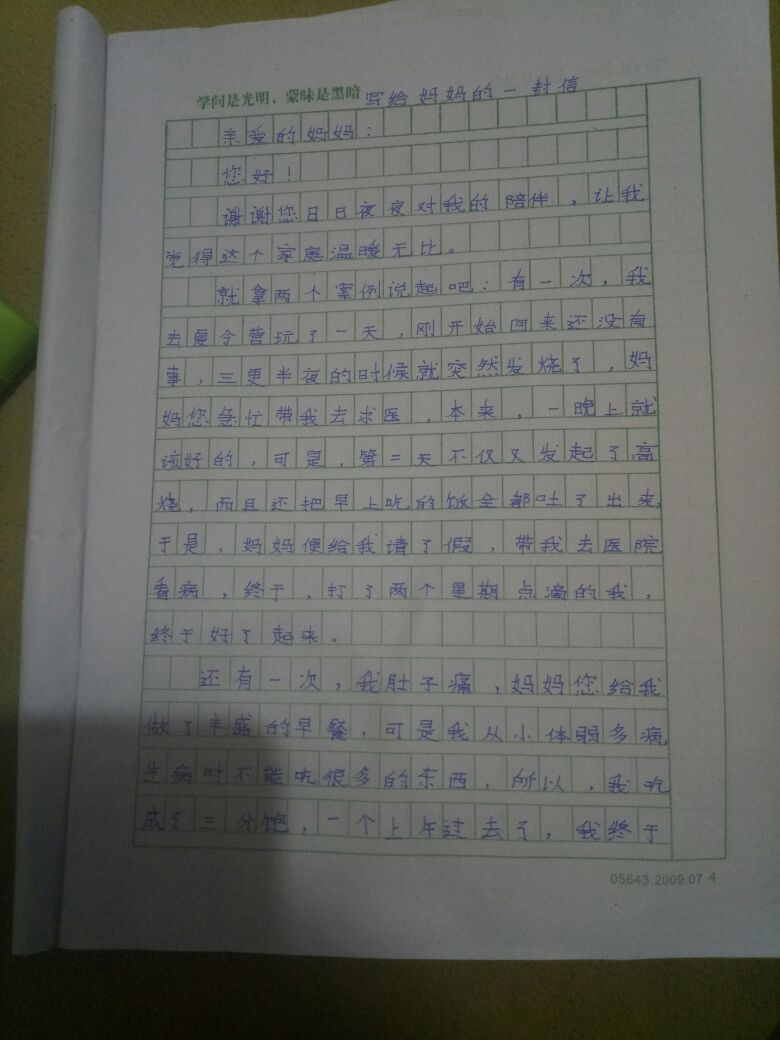 学问是光明，蒙昧是黑暗 写给妈妈的一封信
亲爱的妈妈：
您好！
谢谢您日日夜夜对我的陪伴，让我
觉得这个家庭温暖无比。
就拿两个案例说起吧：有一次，我
去夏令营玩了一天，刚开始回来还没有
事，三更半夜的时候就突然发烧了，妈
妈您急忙带我去求医，本来，一晚上就
该好的，可是，第二天不仅又发起了高
烧，而且还把早上吃的饭全都吐了出来，
于是，妈妈便给我请了假，带我去医院
看病，终于，打了两个星期点滴的我，
终于好了起来。
还有一次，我肚子痛，妈妈您给我
做了丰盛的早餐，可是我从小体弱多病，
生病时不能吃很多的东西，所以，我吃
成了三分饱，一个上午过去了，我终于
05643.2009.07 4